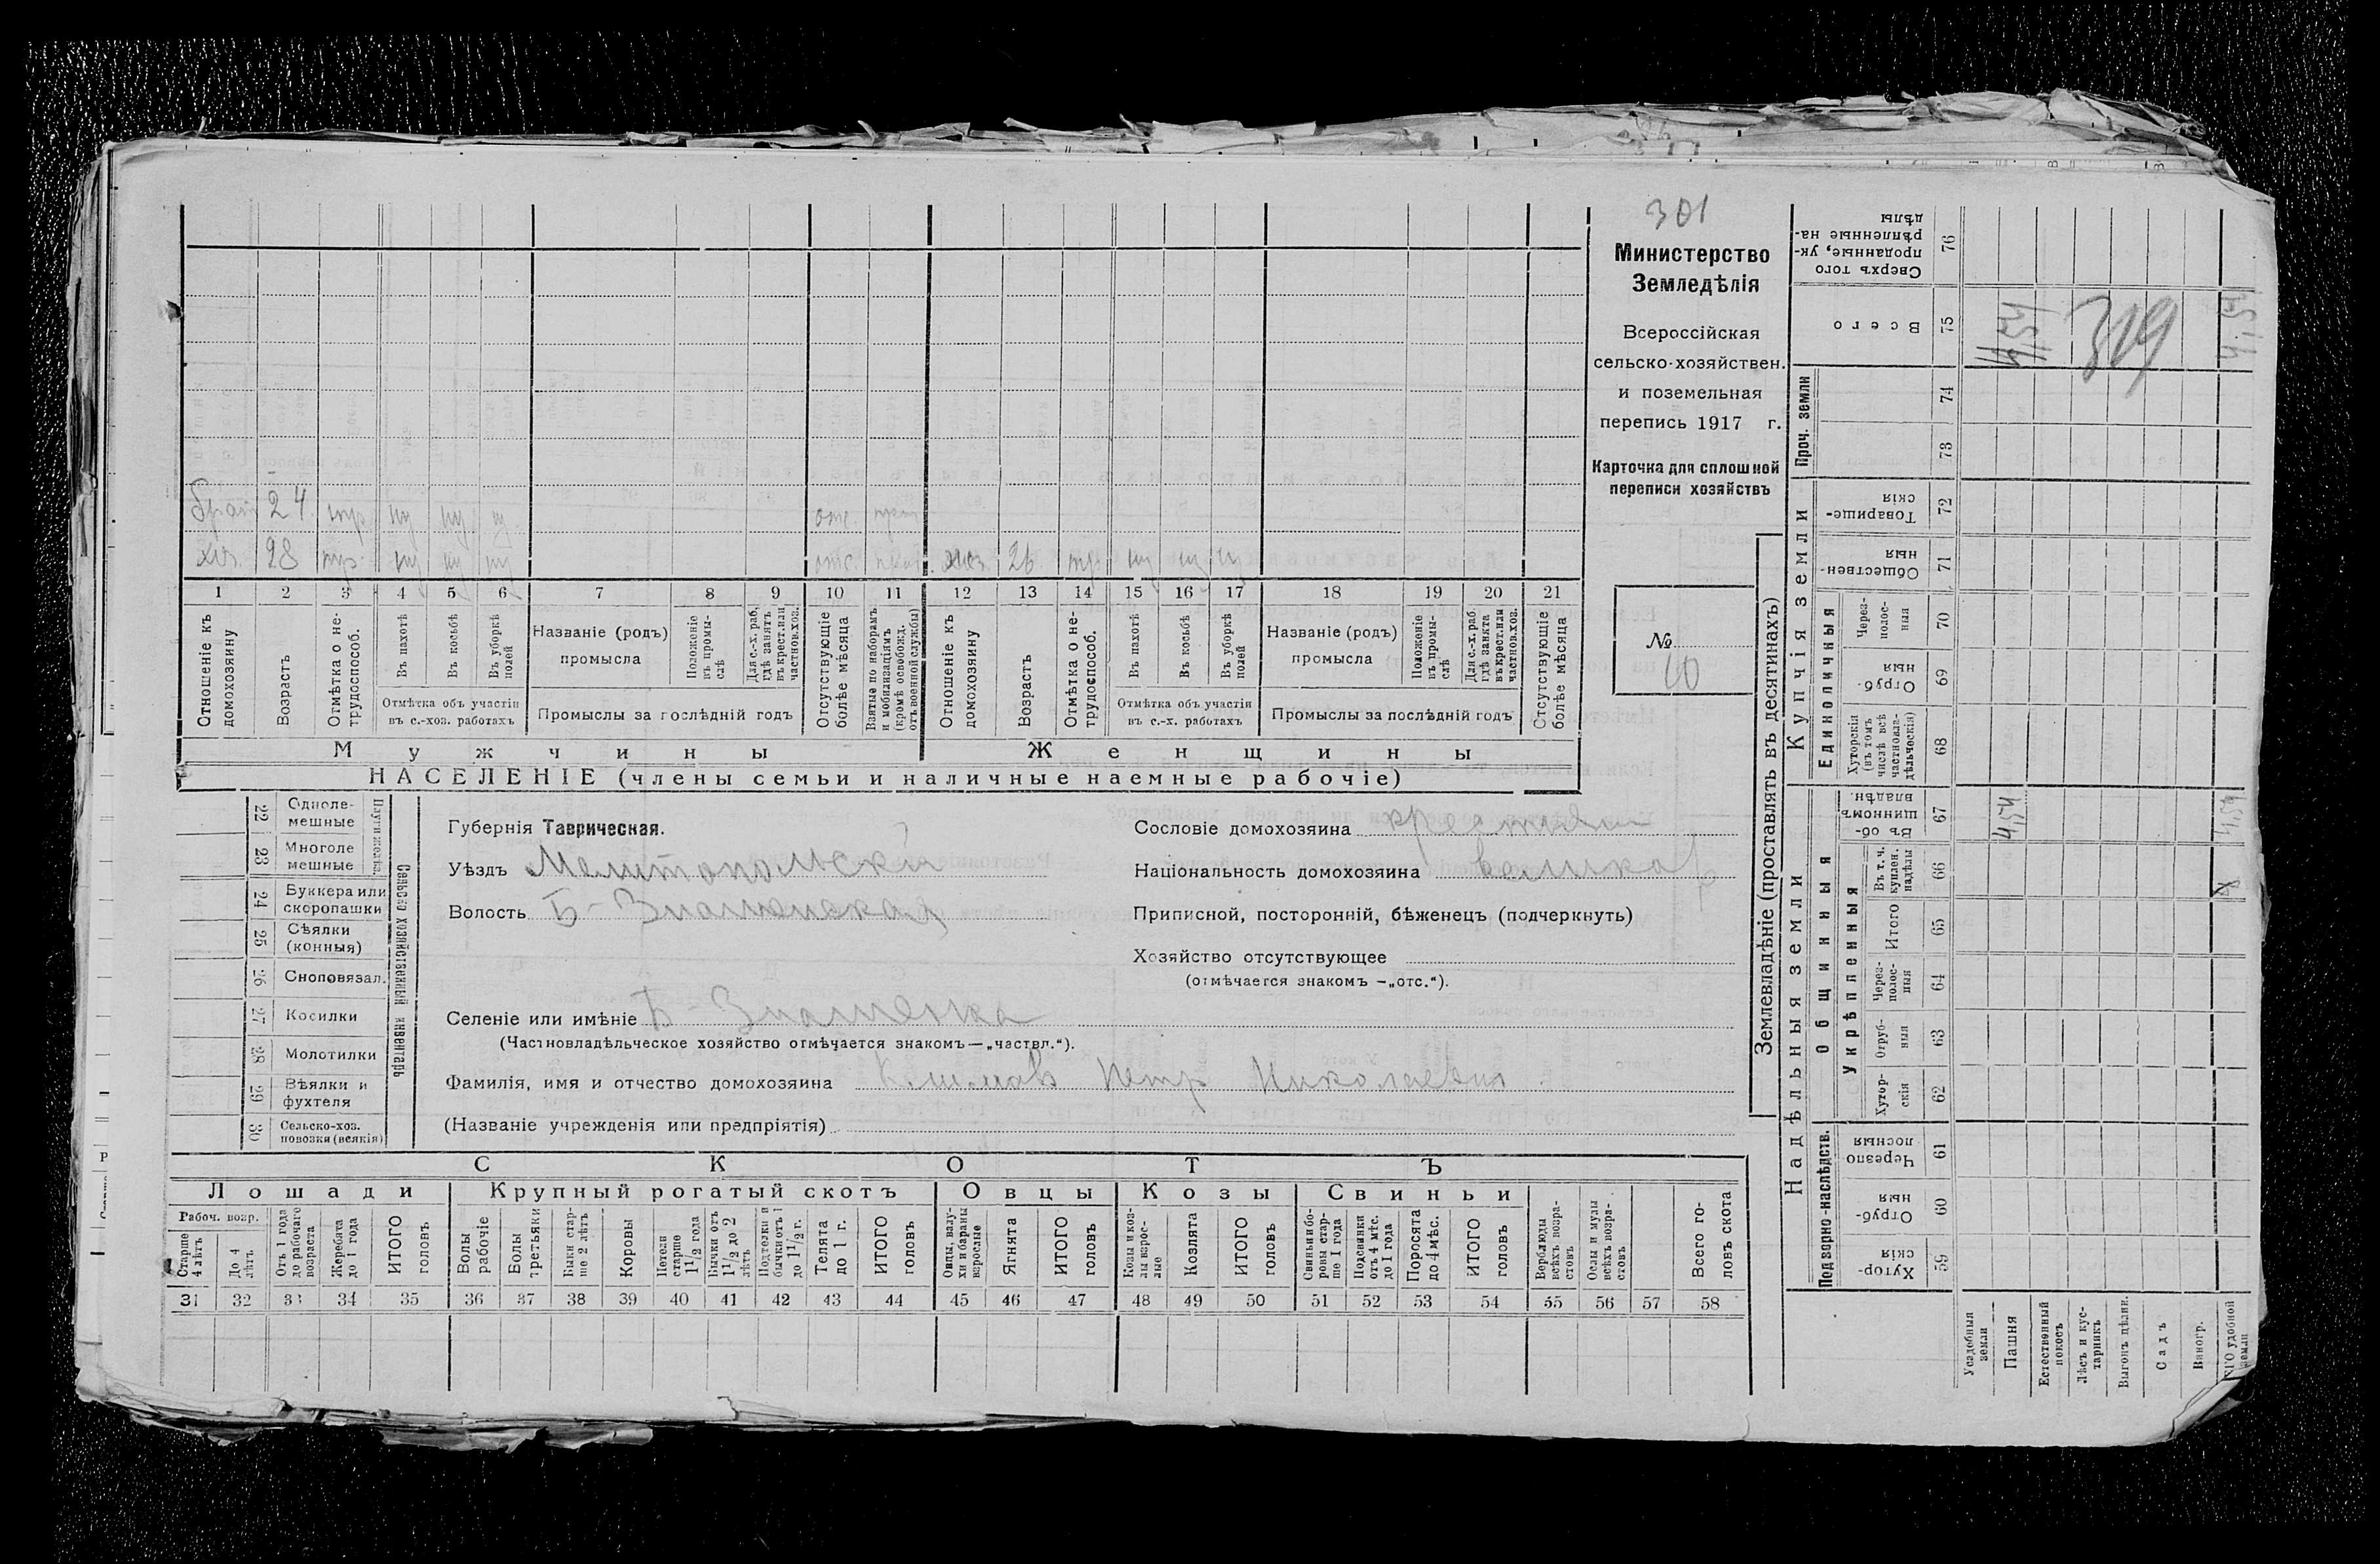 301
Министерство
Земледѣлія
Всероссійская
сельско-хозяйствен.
и поземельная
перепись 1917 г.
Карточка для сплошной
переписи хозяйствъ
№
10
24
хоз. 28 хоз. 26
1 2 3 4 5 6 7 8 9 10 11 12 13 14 15 16 17 18 19 20 21
Отношеніе къ домохозяину
Возрастъ
Отмѣтка о не-трудоспособ.
Въ пахотѣ
Въ косьбѣ
Въ уборкѣ полей
Отмѣтка объ участіи въ с.-хоз. работахъ
Названіе (родъ) промысла
Положеніе въ промы-слѣ
Для с.-х. раб. гдѣ занятъ въ крест. или частнов. хоз.
Промыслы за послѣдній годъ
Отсутствующіе болѣе мѣсяца
Взятые по наборамъ и мобилизаціямъ (кромѣ освобожд. отъ военной службы)
Отношеніе къ домохозяину
Возрастъ
Отмѣтка о не-трудоспособ.
Въ пахотѣ
Въ косьбѣ
Въ уборкѣ полей
Отмѣтка объ участіи въ с.-х. работахъ
Названіе (родъ) промысла
Положеніе въ промы-слѣ
Для с.-х. раб. гдѣ занята въ крест. или частнов. хоз.
Промыслы за послѣдній годъ
Отсутствующіе болѣе мѣсяца
Мужчины Женщины
НАСЕЛЕНІЕ (члены семьи и наличные наемные рабочіе)
22 Одноле-мешные
23 Многоле мешные
24 Буккера или скоропашки
25 Сѣялки (конныя)
26 Сноповязал.
27 Косилки
28 Молотилки
29 Вѣялки и фухтеля
30 Сельско-хоз. повозки (всякія)
Сельско хозяйственный инвентарь
Губернія Таврическая.
Уѣздъ Мелитопольскій
Волость Б-Знаменская
Селеніе или имѣніе Б-Знаменка
(Частновладѣльческое хозяйство отмѣчается знакомъ—„частвл.“).
Фамилія, имя и отчество домохозяина Петр Николаевич
(Названіе учрежденія или предпріятія)
Сословіе домохозяина
Національность домохозяина
Приписной, посторонній, бѣженецъ (подчеркнуть)
Хозяйство отсутствующее
(отмѣчается знакомъ —„отс.“).
СКОТЪ
Лошади Крупный рогатый скотъ Овцы Козы Свиньи
Рабоч. возр.
Старше 4 лѣтъ
До 4 лѣтъ
Отъ 1 года до рабочаго возраста
Жеребята до 1 года
ИТОГО головъ
Волы рабочіе
Волы третьяки
Быки стар-ше 2 лѣтъ
Коровы
Нетели старше 1 1/2 года
Бычки отъ 1 1/2 до 2 лѣтъ
Подтелки и бычки отъ 1 до 1 1/2 г.
Телята до 1 г.
ИТОГО головъ
Овцы, валу-хи и бараны взрослые
Ягнята
ИТОГО головъ
Козы и коз-лы взрос-лые
Козлята
ИТОГО головъ
Свиньи и бо-ровы стар-ше 1 года
Подсвинки отъ 4 мѣс. до 1 года
Поросята до 4 мѣс.
ИТОГО головъ
Верблюды всѣхъ возра-стовъ
Ослы и мулы всѣхъ возра-стовъ
Всего го-ловъ скота
31 32 33 34 35 36 37 38 39 40 41 42 43 44 45 46 47 48 49 50 51 52 53 54 55 56 57 58
Землевладѣніе (проставлять въ десятинахъ)
Надѣльныя земли
Купчія земли
Проч. земли
Подворно-наслѣдств.
Общинныя
Укрѣпленныя
Единоличныя
Хутор-скія 59
Отруб-ныя 60
Черезпо-лосныя 61
Хутор-скія 62
Отруб-ныя 63
Через-полос-ныя 64
Итого 65
Въ т. ч. куплен. надѣлы 66
Въ об-щинномъ владѣн. 67
Хуторскія (въ томъ числѣ всѣ частновла-дѣльческія) 68
Отруб-ныя 69
Через-полос-ныя 70
Обществен-ныя 71
Товарище-скія 72
73
74
Всего 75
Сверхъ того проданные, ук-рѣпленные на-дѣлы 76
Усадебныя земли
Пашня 4,54 4,54
Естественный покосъ
Лѣсъ и кус-тарникъ
Выгонъ цѣлин.
Садъ
Виногр.
удобной земли 4,54 4,54
319